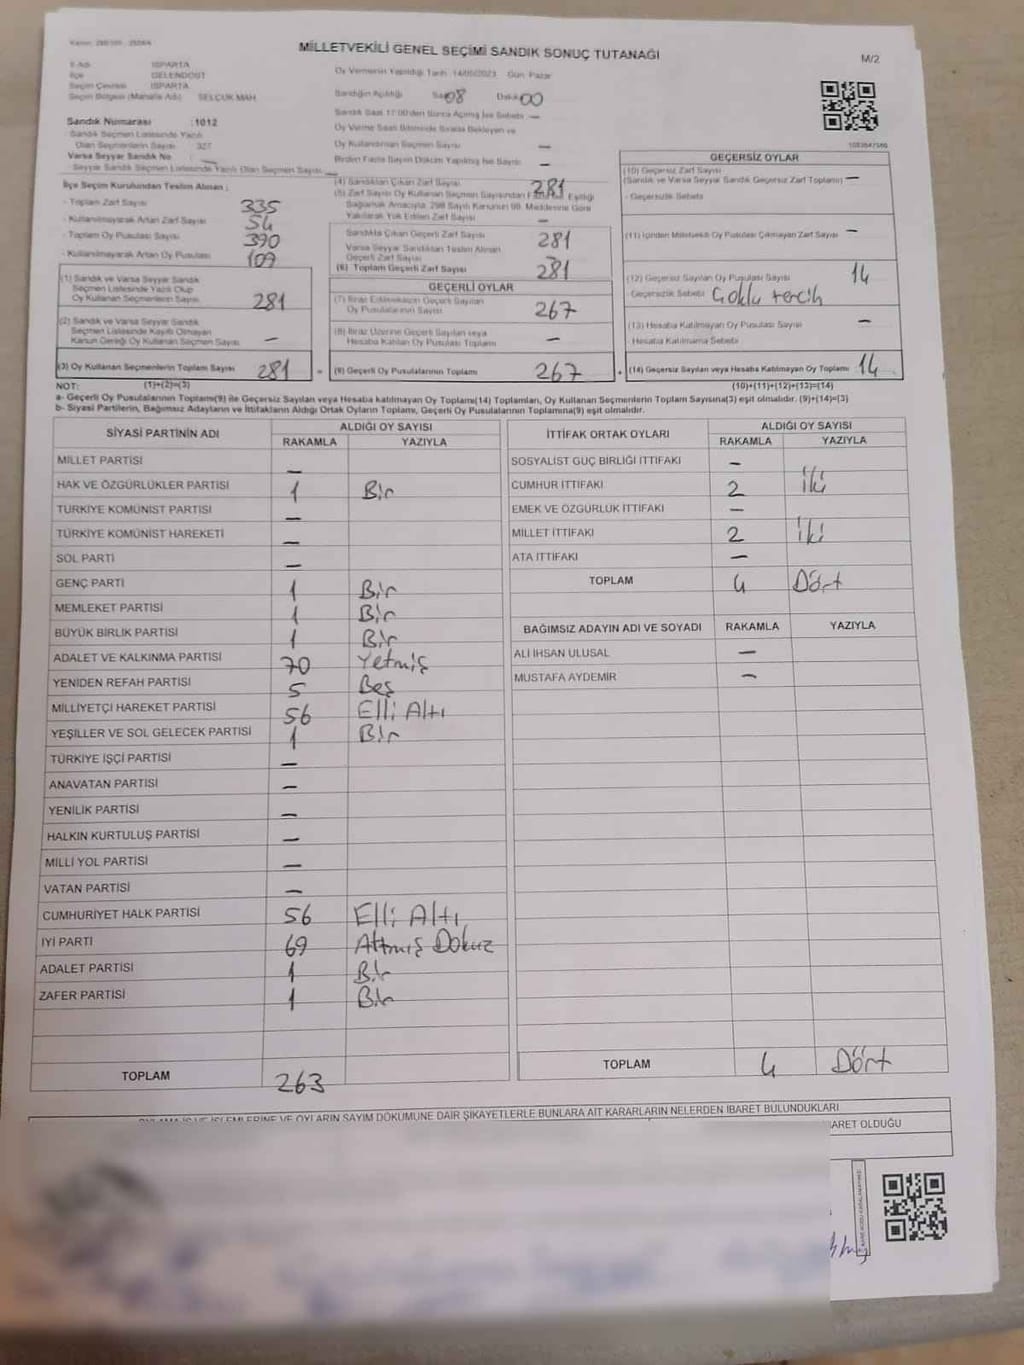 MİLLETVEKİLİ GENEL SEÇİMİ SANDIK SONUÇ TUTANAĞI
M/2
İl Adı ISPARTA
İlçe GELENDOST
Seçim Çevresi ISPARTA
Seçim Bölgesi (Mahalle Adı) SELÇUK MAH
Sandık Numarası :1012
Sandık Seçmen Listesinde Yazılı
Olan Seçmenlerin Sayısı 327
Varsa Seyyar Sandık No —
Seyyar Sandık Seçmen Listesinde Yazılı Olan Seçmen Sayısı —
Oy Vermenin Yapıldığı Tarih 14/05/2023 Gün Pazar
Sandığın Açıldığı Saat 08 Dakika 00
Sandık Saat 17:00'den Sonra Açılmış İse Sebebi —
Oy Verme Saati Bitiminde Sırada Bekleyen ve
Oy Kullandırılan Seçmen Sayısı —
Birden Fazla Sayım Döküm Yapılmış İse Sayısı —
İlçe Seçim Kurulundan Teslim Alınan :
- Toplam Zarf Sayısı 335
- Kullanılmayarak Artan Zarf Sayısı 54
- Toplam Oy Pusulası Sayısı 390
- Kullanılmayarak Artan Oy Pusulası 109
(1) Sandık ve Varsa Seyyar Sandık
Seçmen Listesinde Yazılı Olup
Oy Kullanan Seçmenlerin Sayısı 281
(2) Sandık ve Varsa Seyyar Sandık
Seçmen Listesinde Kayıtlı Olmayan
Kanun Gereği Oy Kullanan Seçmen Sayısı —
(3) Oy Kullanan Seçmenlerin Toplam Sayısı 281
(4) Sandıktan Çıkan Zarf Sayısı 281
(5) Zarf Sayısı Oy Kullanan Seçmen Sayısından Fazla İse, Eşitliği
Sağlamak Amacıyla, 298 Sayılı Kanunun 98. Maddesine Göre
Yakılarak Yok Edilen Zarf Sayısı —
Sandıkta Çıkan Geçerli Zarf Sayısı 281
Varsa Seyyar Sandıktan Teslim Alınan
Geçerli Zarf Sayısı
(6) Toplam Geçerli Zarf Sayısı 281
GEÇERLİ OYLAR
(7) İtiraz Edilmeksizin Geçerli Sayılan
Oy Pusulalarının Sayısı 267
(8) İtiraz Üzerine Geçerli Sayılan veya
Hesaba Katılan Oy Pusulası Toplamı —
(9) Geçerli Oy Pusulalarının Toplamı 267
GEÇERSİZ OYLAR
(10) Geçersiz Zarf Sayısı
(Sandık ve Varsa Seyyar Sandık Geçersiz Zarf Toplamı) —
- Geçersizlik Sebebi
(11) İçinden Milletvekili Oy Pusulası Çıkmayan Zarf Sayısı —
(12) Geçersiz Sayılan Oy Pusulası Sayısı 14
- Geçersizlik Sebebi Çoklu tercih
(13) Hesaba Katılmayan Oy Pusulası Sayısı —
- Hesaba Katılmama Sebebi
(14) Geçersiz Sayılan veya Hesaba Katılmayan Oy Toplamı 14
NOT: (1)+(2)=(3) (10)+(11)+(12)+(13)=(14)
a- Geçerli Oy Pusulalarının Toplamı(9) ile Geçersiz Sayılan veya Hesaba katılmayan Oy Toplamı(14) Toplamları, Oy Kullanan Seçmenlerin Toplam Sayısına(3) eşit olmalıdır. (9)+(14)=(3)
b- Siyasi Partilerin, Bağımsız Adayların ve İttifakların Aldığı Ortak Oyların Toplamı, Geçerli Oy Pusulalarının Toplamına(9) eşit olmalıdır.
SİYASİ PARTİNİN ADI ALDIĞI OY SAYISI
RAKAMLA YAZIYLA
MİLLET PARTİSİ —
HAK VE ÖZGÜRLÜKLER PARTİSİ 1 Bir
TÜRKİYE KOMÜNİST PARTİSİ —
TÜRKİYE KOMÜNİST HAREKETİ —
SOL PARTİ —
GENÇ PARTİ 1 Bir
MEMLEKET PARTİSİ 1 Bir
BÜYÜK BİRLİK PARTİSİ 1 Bir
ADALET VE KALKINMA PARTİSİ 70 Yetmiş
YENİDEN REFAH PARTİSİ 5 Beş
MİLLİYETÇİ HAREKET PARTİSİ 56 Elli Altı
YEŞİLLER VE SOL GELECEK PARTİSİ 1 Bir
TÜRKİYE İŞÇİ PARTİSİ —
ANAVATAN PARTİSİ —
YENİLİK PARTİSİ —
HALKIN KURTULUŞ PARTİSİ —
MİLLİ YOL PARTİSİ —
VATAN PARTİSİ —
CUMHURİYET HALK PARTİSİ 56 Elli Altı
İYİ PARTİ 69 Altmış Dokuz
ADALET PARTİSİ 1 Bir
ZAFER PARTİSİ 1 Bir
TOPLAM 263
İTTİFAK ORTAK OYLARI ALDIĞI OY SAYISI
RAKAMLA YAZIYLA
SOSYALİST GÜÇ BİRLİĞİ İTTİFAKI —
CUMHUR İTTİFAKI 2 İki
EMEK VE ÖZGÜRLÜK İTTİFAKI —
MİLLET İTTİFAKI 2 İki
ATA İTTİFAKI —
TOPLAM 4 Dört
BAĞIMSIZ ADAYIN ADI VE SOYADI RAKAMLA YAZIYLA
ALİ İHSAN ULUSAL —
MUSTAFA AYDEMİR —
TOPLAM 4 Dört
İŞLEMLERİNE VE OYLARIN SAYIM DÖKÜMÜNE DAİR ŞİKAYETLERLE BUNLARA AİT KARARLARIN NELERDEN İBARET BULUNDUKLARI
İBARET OLDUĞU